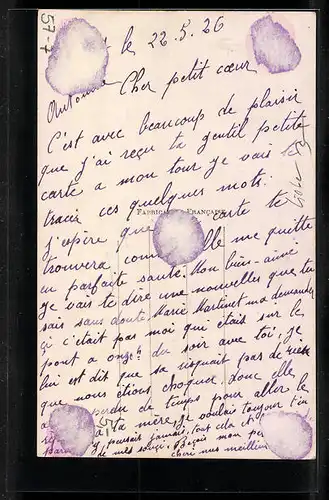 57-7
le 22.5.26
Antoinne Cher petit cœur
C'est avec beaucoup de plaisir
que j'ai reçu ta gentil petite
carte a mon tour je vais te
tracer ces quelques mots.
FABRICATION FRANÇAISE
j'espère que carte te
trouvera comme elle me quitte
en parfaite santé. Mon bien-aimé
je vais te dire une nouvelles que tu
sais sans doute Marie Martinet m'a demander
si c'était pas moi qui était sur le
pont a onze h du soir avec toi, je
lui est dit que sa risquait pas de rien
que nous étions choquer, donc elle
a perdu de temps pour aller le
a ta mère, je voulais toujour t'en
parler jamais, tout cela
de mes Reçois mon
cheri mes meilleurs